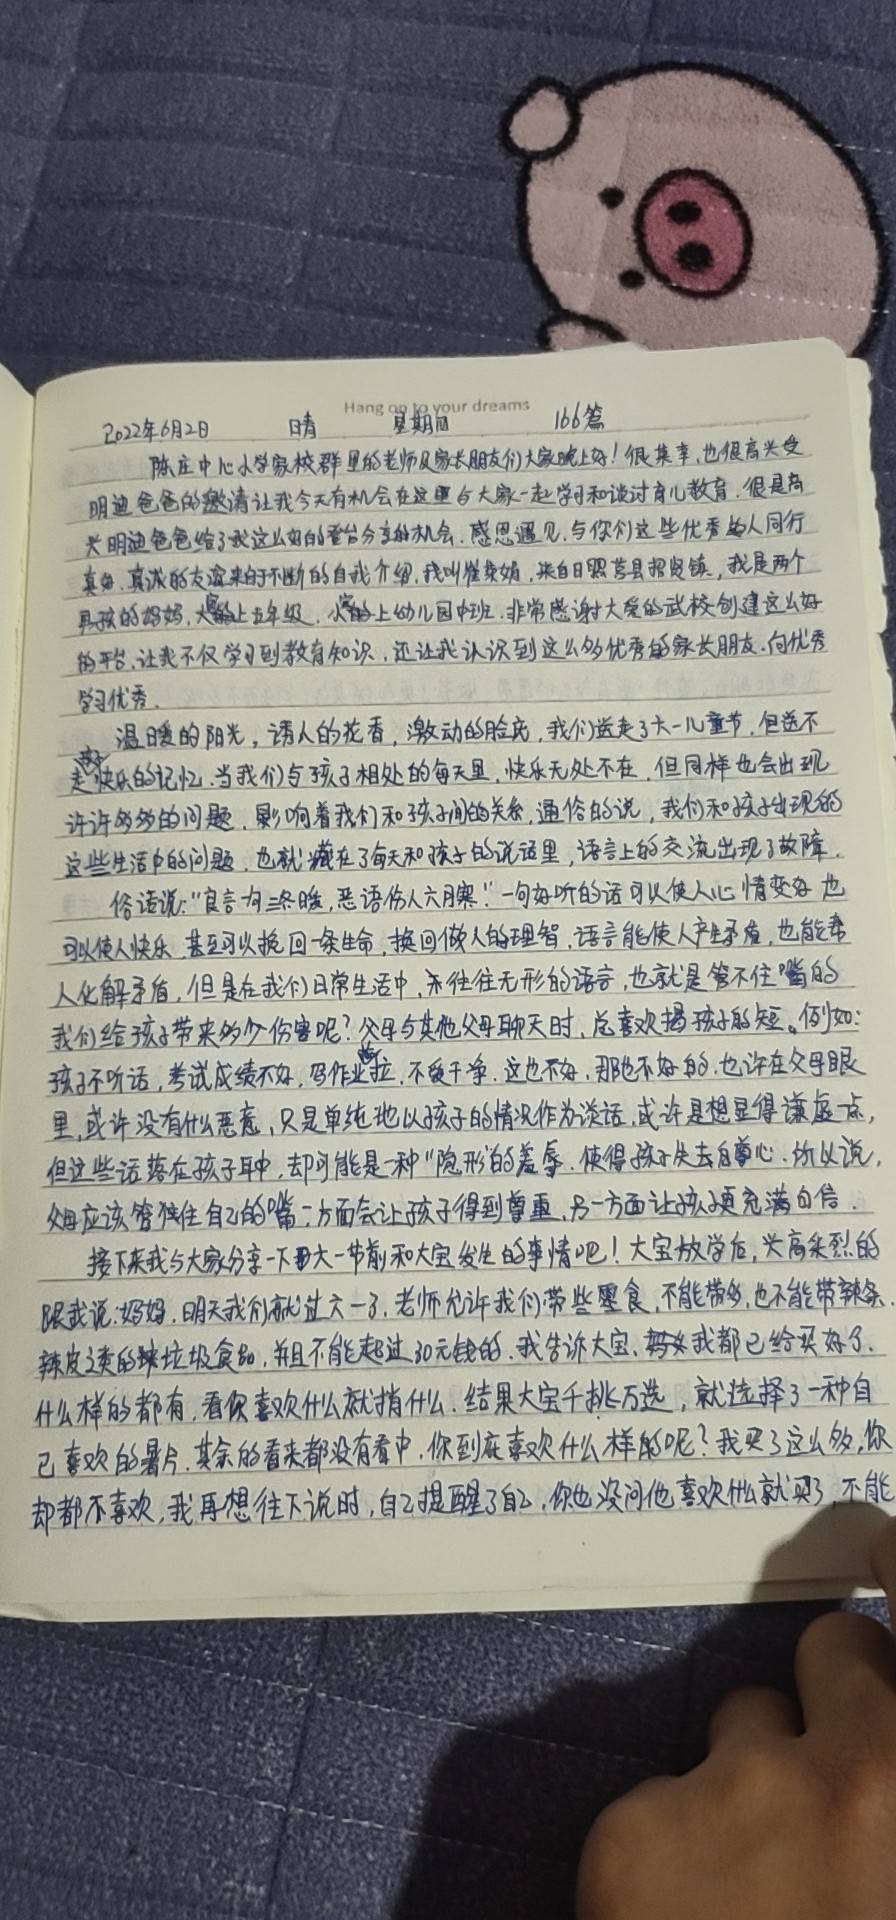 Hang on to your dreams
2022年6月2日 晴 星期四 166篇
陈庄中心小学家校群里的老师及家长朋友们大家晚上好！很荣幸,也很高兴受
明迪爸爸的邀请让我今天有机会在这里与大家一起学习和谈讨育儿教育.很是高
兴明迪爸爸给了我这么好的平台分享的机会.感恩遇见,与你们这些优秀的人同行
真好.真诚的友谊来的于不断的自我介绍.我叫崔 娟,来自日照莒县招贤镇,我是两个
男孩的妈妈,大宝上五年级,小宝上幼儿园中班.非常感谢大爱的武校创建这么好
的平台,让我不仅学习到教育知识,还让我认识到这么多优秀的家长朋友.向优秀
学习优秀.
温暖的阳光,诱人的花香,激动的脸庞,我们送走了六一儿童节,但送不
走快乐的记忆.当我们与孩子相处的每天里,快乐无处不在,但同样也会出现
许许多多的问题,影响着我们和孩子间的关系,通俗的说,我们和孩子出现的
这些生活中的问题,也就藏在了每天和孩子的说话里,语言上的交流出现了故障.
俗话说:"良言一句三冬暖,恶语伤人六月寒."一句好听的话可以使人心情变好也
可以使人快乐,甚至可以挽回一条生命,换回做人的理智,语言能使人产生矛盾,也能帮
人化解矛盾,但是在我们日常生活中,往往无形的语言,也就是管不住嘴的
我们给孩子带来多少伤害呢?父母与其他父母聊天时,总喜欢揭孩子的短。例如:
孩子不听话,考试成绩不好,写作业拉,不爱干净.这也不好,那也不好的.也许在父母眼
里,或许没有什么恶意,只是单纯地以孩子的情况作为谈话,或许是想显得谦虚一点,
但这些话落在孩子耳中,却可能是一种"隐形"的羞辱.使得孩子失去自尊心.所以说,
父母应该管住自己的嘴一方面会让孩子得到尊重,另一方面让孩子更充满自信.
接下来我与大家分享一下六一节前和大宝发生的事情吧!大宝放学后,兴高采烈的
跟我说:妈妈.明天我们就过六一了,老师允许我们带些零食,不能带多,也不能带辣条.
辣皮之类的辣垃圾食品,并且不能超过30元钱的.我告诉大宝,我都已给买好了.
什么样的都有,看你喜欢什么就捎什么.结果大宝千挑万选,就选择了一种自
己喜欢的薯片.其余的看来都没有看中.你到底喜欢什么样的呢?我买了这么多,你
却都不喜欢,我再想往下说时,自己提醒了自己,你也没问他喜欢什么就买了,不能